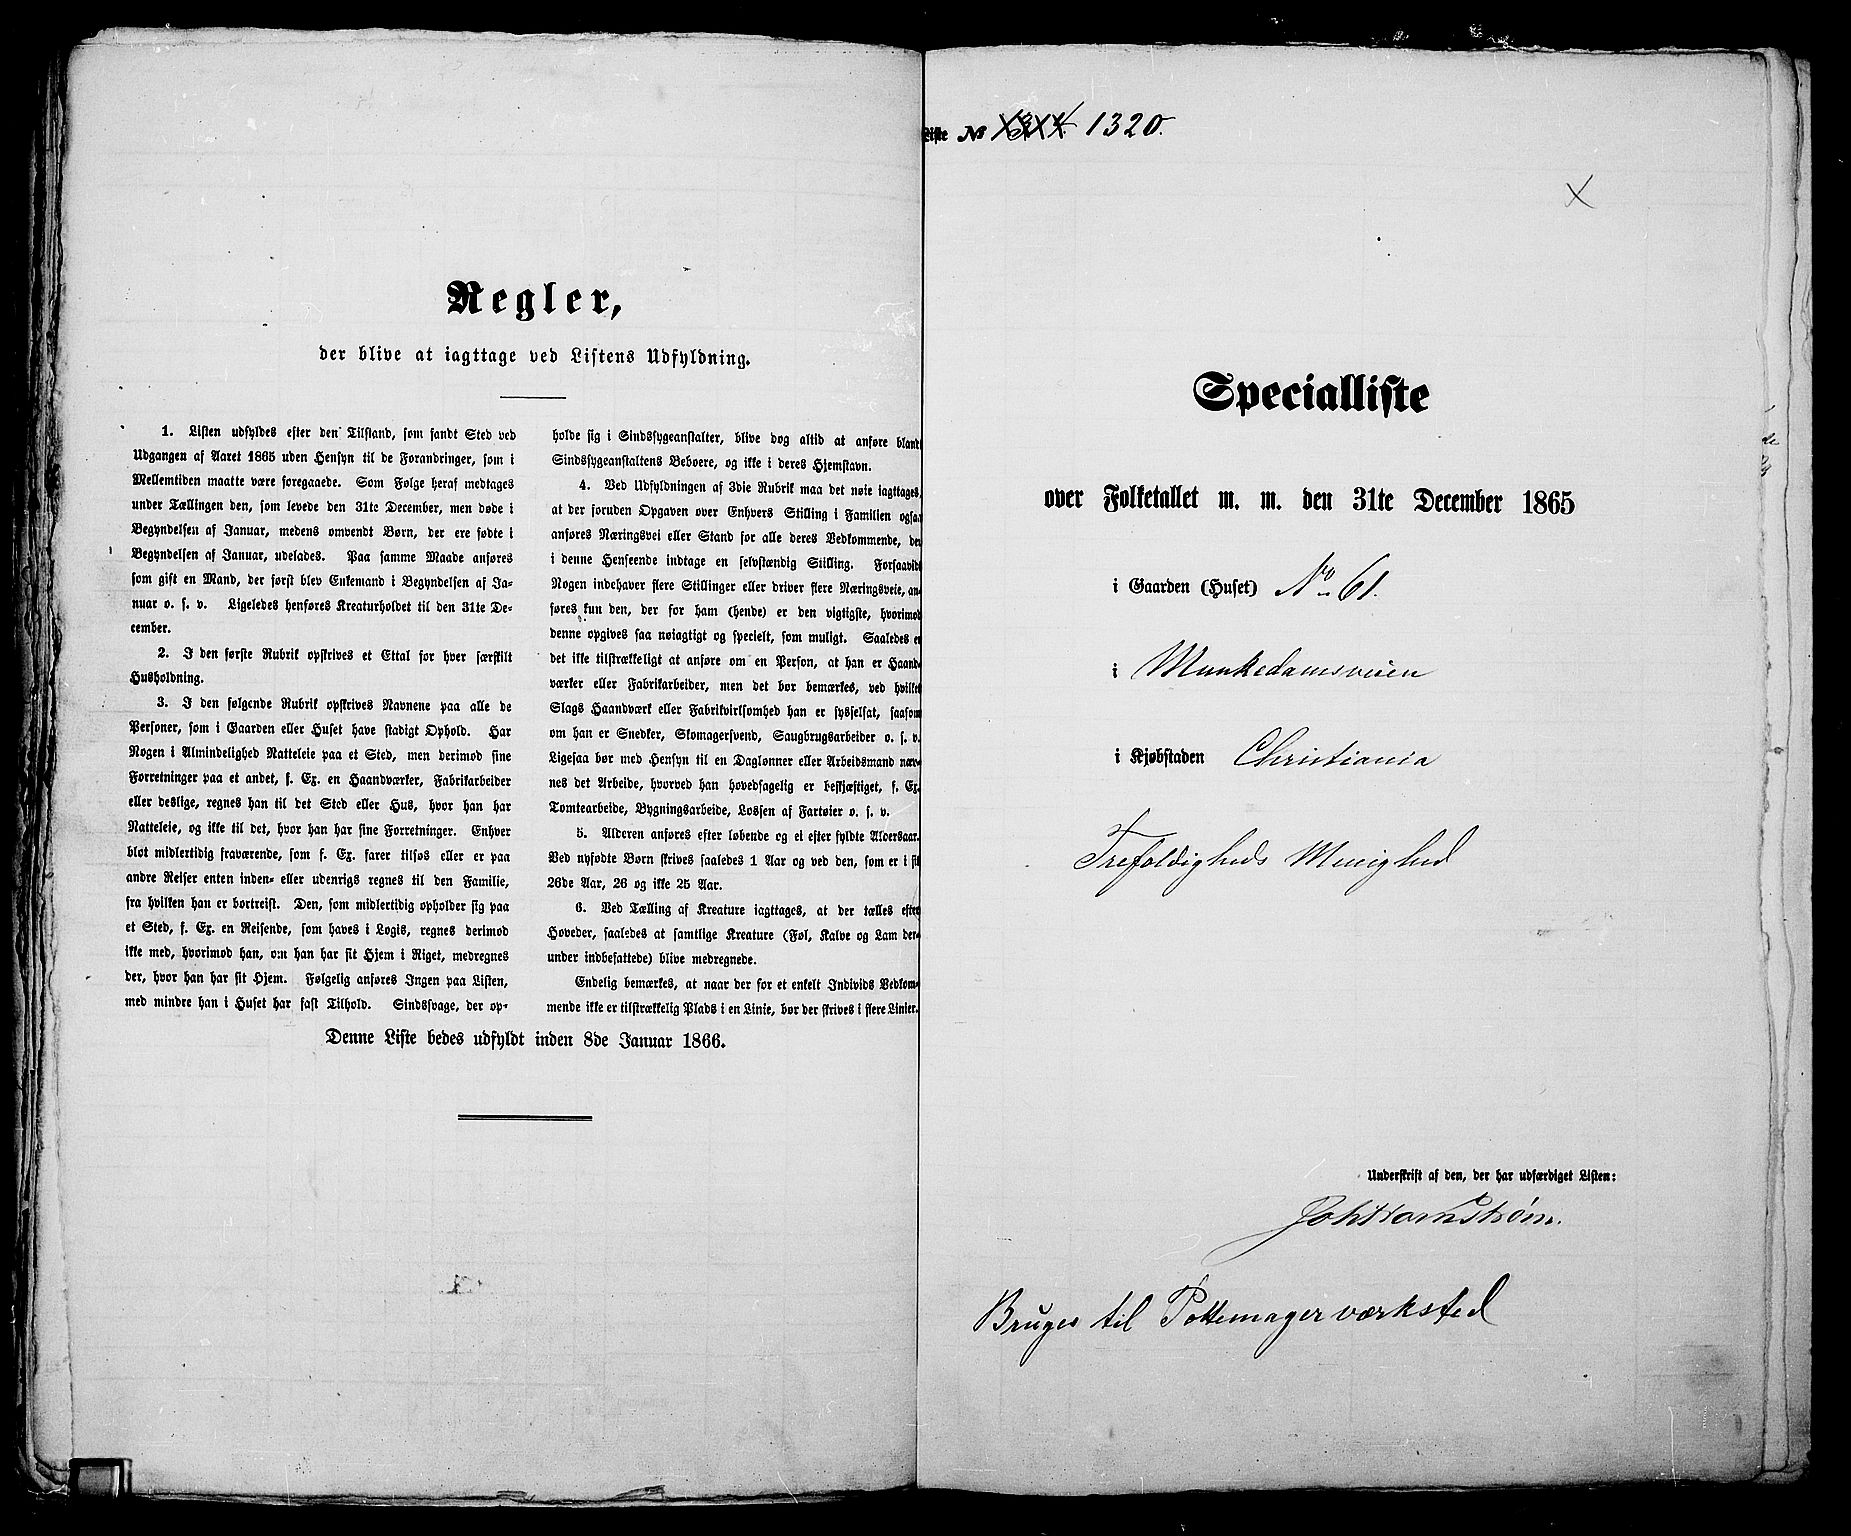 Regler,
der blive at iagttage ved Listens Udfyldning.
1. Listen udfyldes efter den Tilstand, som fandt Sted ved
Udgangen af Aaret 1865 uden Hensyn til de Forandringer, som i
Mellemtiden maatte være foregaaede. Som Følge heraf medtages
under Tællingen den, som levede den 31te December, men døde i
Begyndelsen af Januar, medens omvendt Børn, der ere fødte i
Begyndelsen af Januar, udelades. Paa samme Maade anføres
som gift en Mand, der først blev Enkemand i Begyndelsen af Ja-
nuar o. s. v. Ligeledes henføres Kreaturholdet til den 31te De-
cember.
2. I den første Rubrik opskrives et Ettal for hver særskilt
Husholdning.
3. I den følgende Rubrik opskrives Navnene paa alle de
Personer, som i Gaarden eller Huset have stadigt Ophold. Har
Nogen i Almindelighed Natteleie paa et Sted, men derimod sine
Forretninger paa et andet, f. Ex. en Haandværker, Fabrikarbeider
eller deslige, regnes han til det Sted eller Hus, hvor han har
Natteleie, og ikke til det, hvor han har sine Forretninger. Enhver
blot midlertidig fraværende, som f. Ex. farer tilsøs eller er paa
andre Reiser enten inden- eller udenrigs regnes til den Familie,
fra hvilken han er bortreist. Den, som midlertidig opholder sig paa
et Sted, f. Ex. en Reisende, som haves i Logis, regnes derimod
ikke med, hvorimod han, om han har sit Hjem i Riget, medregnes
der, hvor han har sit Hjem. Følgelig anføres Ingen paa Listen,
med mindre han i Huset har fast Tilhold. Sindssvage, der op-
holde sig i Sindssygeanstalter, blive dog altid at anføre blandt
Sindssygeanstaltens Beboere, og ikke i deres Hjemstavn.
4. Ved Udfyldningen af 3die Rubrik maa det nøie iagttages,
at der foruden Opgaven over Enhvers Stilling i Familien ogsaa
anføres Næringsvei eller Stand for alle deres Vedkommende, der
i denne Henseende indtage en selvstændig Stilling. Forsaavidt
Nogen indehaver flere Stillinger eller driver flere Næringsveie, an-
føres kun den, der for ham (hende) er den vigtigste, hvorimod
denne opgives saa nøiagtigt og specielt, som muligt. Saaledes er
det ikke tilstrækkeligt at anføre om en Person, at han er Haand-
værker eller Fabrikarbeider, men det bør bemærkes, ved hvilket
Slags Haandværk eller Fabrikvirksomhed han er sysselsat, saasom
om han er Snedker, Skomagersvend, Saugbrugsarbeider o. s. v.
Ligesaa bør med Hensyn til en Daglønner eller Arbeidsmand næv-
nes det Arbeide, hvorved han hovedsagelig er beskjæftiget, f. Ex.
Tomtearbeide, Bygningsarbeide, Lossen af Fartøier o. s. v.
5. Alderen anføres efter løbende og ei efter fyldte Aldersaar.
Ved nyfødte Børn skrives saaledes 1 Aar og ved den, som er i sit
26de Aar, 26 og ikke 25 Aar.
6. Ved Tælling af Kreature iagttages, at der tælles efter
Hoveder, saaledes at samtlige Kreature (Føl, Kalve og Lam der-
under indbefattede) blive medregnede.
Endelig bemærkes, at naar der for et enkelt Individs Vedkom-
mende ikke er tilstrækkelig Plads i en Linie, bør der skrives i flere Linier.
Denne Liste bedes udfyldt inden 8de Januar 1866.
Liste No 1320.
Specialliste
over Folketallet m. m. den 31te December 1865
i Gaarden (Huset) No 61.
i Munkedamsveien
i Kjøbstaden Christiania
Trefoldigheds Menighed
Underskrift af den, der har udfærdiget Listen:
Bruges til Pottemagerværksted